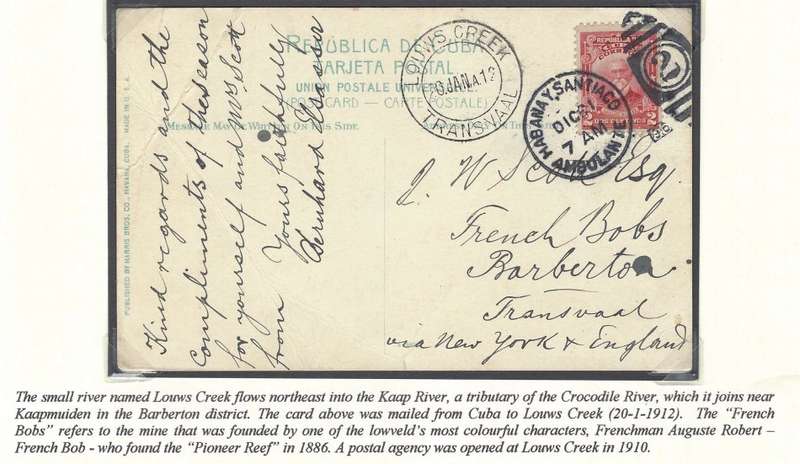 REPÚBLICA DE CUBA
TARJETA POSTAL
UNION POSTALE UNIVERSELLE
(POSTCARD — CARTE POSTALE)
MESSAGE MAY BE WRITTEN ON THIS SIDE.
PUBLISHED BY HARRIS BROS. CO., HAVANA, CUBA. MADE IN U.S.A.
Kind regards and the
compliments of the Season
for yourself and Mrs. Scott
from Yours faithfully
Bernhard Elsasser
LOUWS CREEK
20 JAN 12
TRANSVAAL
REPUBLICA DE
CUBA
2
2
HABANA Y SANTIAGO
DIC 31
7 AM
AMBULANTE
J. W. Scott Esq.
French Bobs
Barberton
Transvaal
via New York & England
The small river named Louws Creek flows northeast into the Kaap River, a tributary of the Crocodile River, which it joins near
Kaapmuiden in the Barberton district. The card above was mailed from Cuba to Louws Creek (20-1-1912). The “French
Bobs” refers to the mine that was founded by one of the lowveld's most colourful characters, Frenchman Auguste Robert –
French Bob - who found the “Pioneer Reef” in 1886. A postal agency was opened at Louws Creek in 1910.